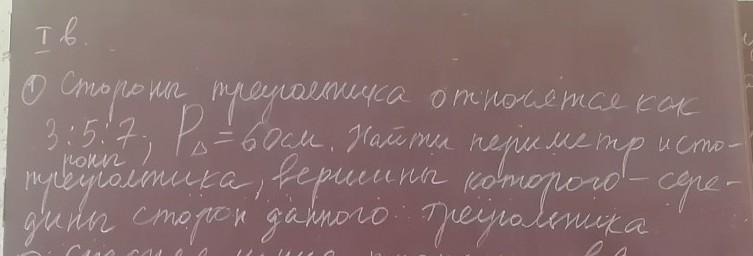 I в.
① Стороны треугольника относятся как
3:5:7, P△ = 60 см. Найти периметр и сто-
роны
треугольника, вершины которого – сере-
дины сторон данного треугольника